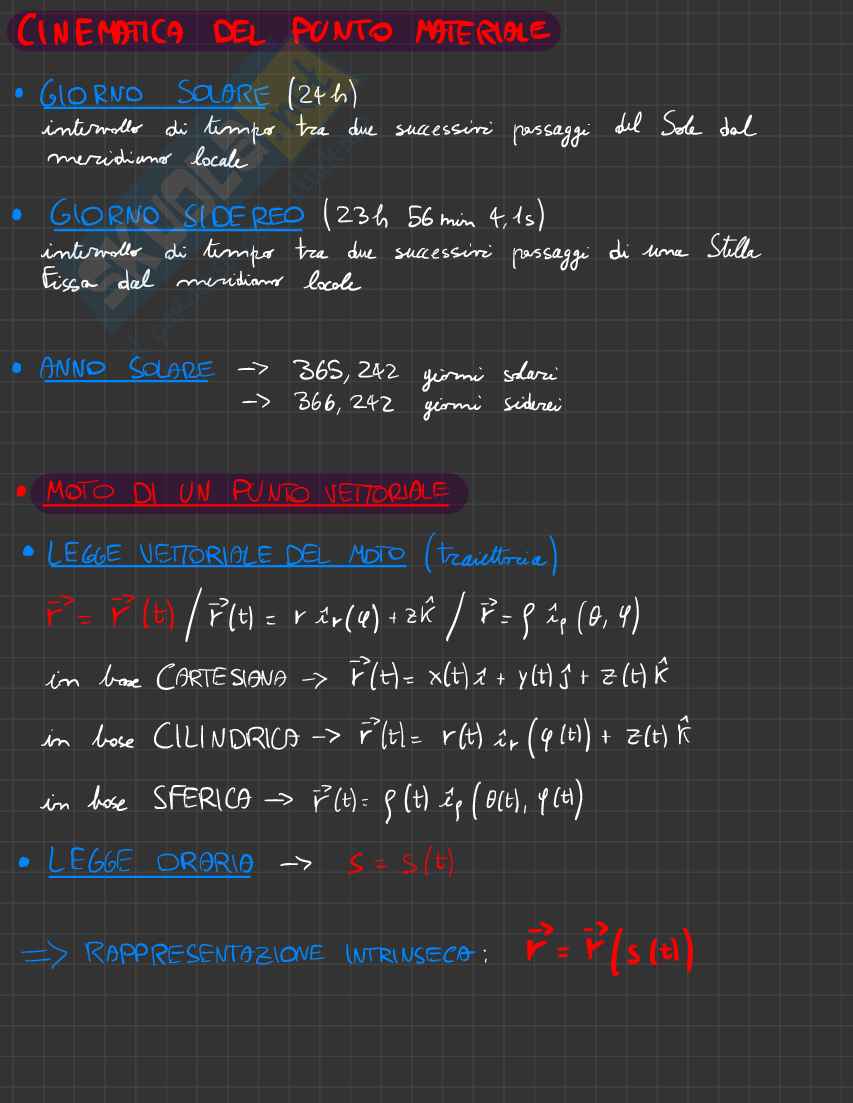 CINEMATICA DEL PUNTO MATERIALE
• GIORNO SOLARE (24 h)
intervallo di tempo tra due successivi passaggi del Sole dal
meridiano locale
• GIORNO SIDEREO (23h 56 min 4,1s)
intervallo di tempo tra due successivi passaggi di una Stella
Fissa dal meridiano locale
• ANNO SOLARE -> 365,242 giorni solari
-> 366,242 giorni siderei
• MOTO DI UN PUNTO VETTORIALE
• LEGGE VETTORIALE DEL MOTO (traiettoria)
r⃗ = r⃗(t) / r⃗(t) = r î_r(φ) + zk̂ / r⃗ = ρ î_ρ(θ, φ)
in base CARTESIANA -> r⃗(t) = x(t) î + y(t) ĵ + z(t) k̂
in base CILINDRICA -> r⃗(t) = r(t) î_r(φ(t)) + z(t) k̂
in base SFERICA -> r⃗(t) = ρ(t) î_ρ(θ(t), φ(t)
• LEGGE ORARIA -> s = s(t)
=> RAPPRESENTAZIONE INTRINSECA: r⃗ = r⃗(s(t))